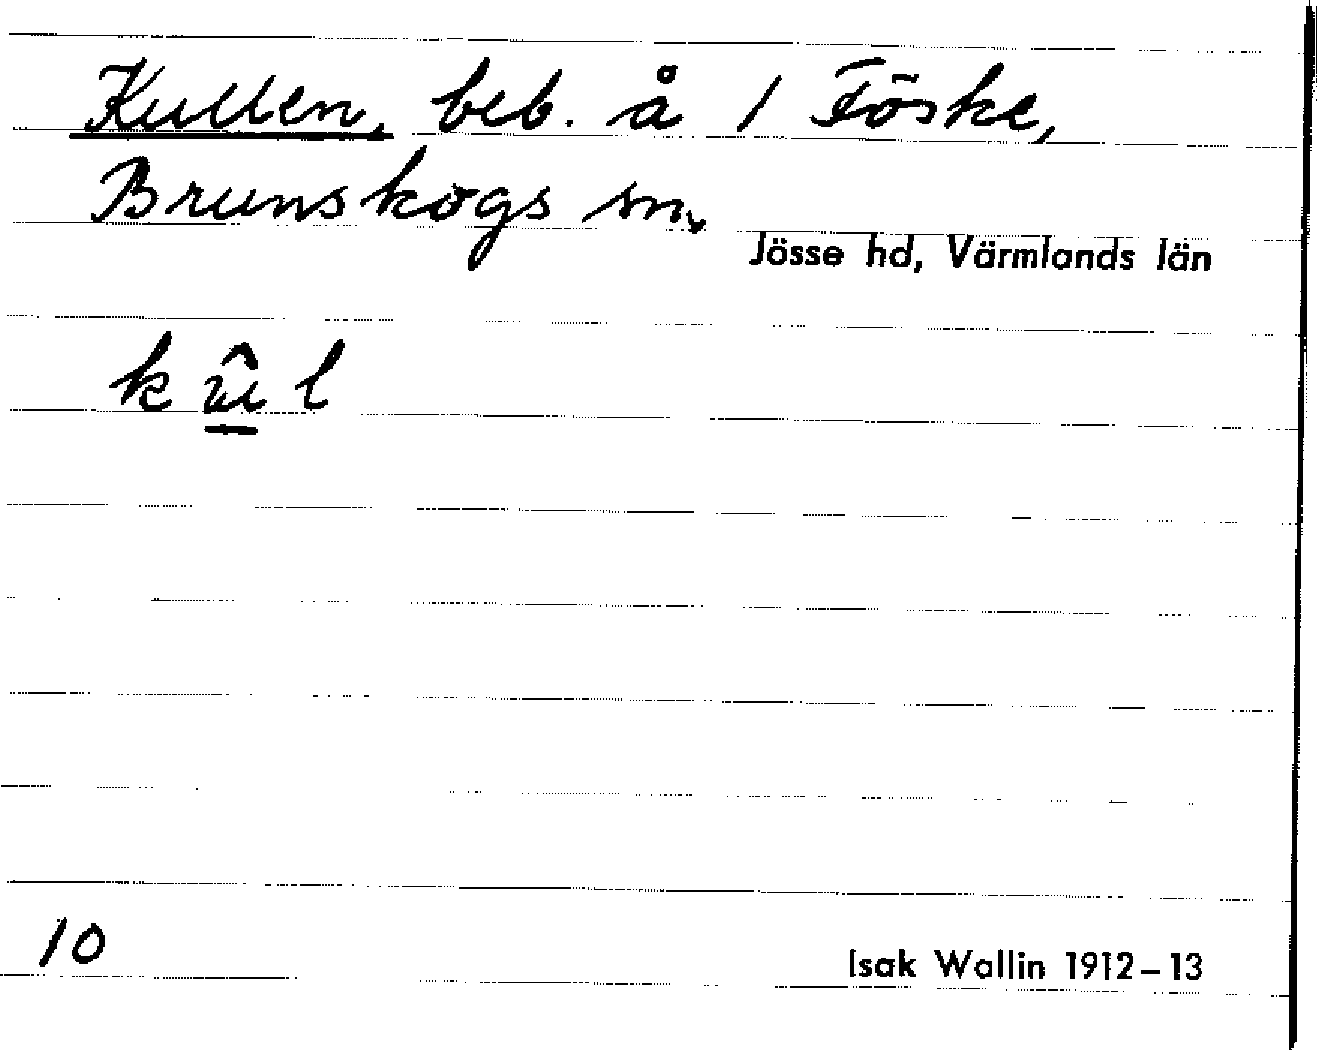 Kullen, beb. å 1 Föske,
Brunskogs sn,
Jösse hd, Värmlands län
10
Isak Wallin 1912-13